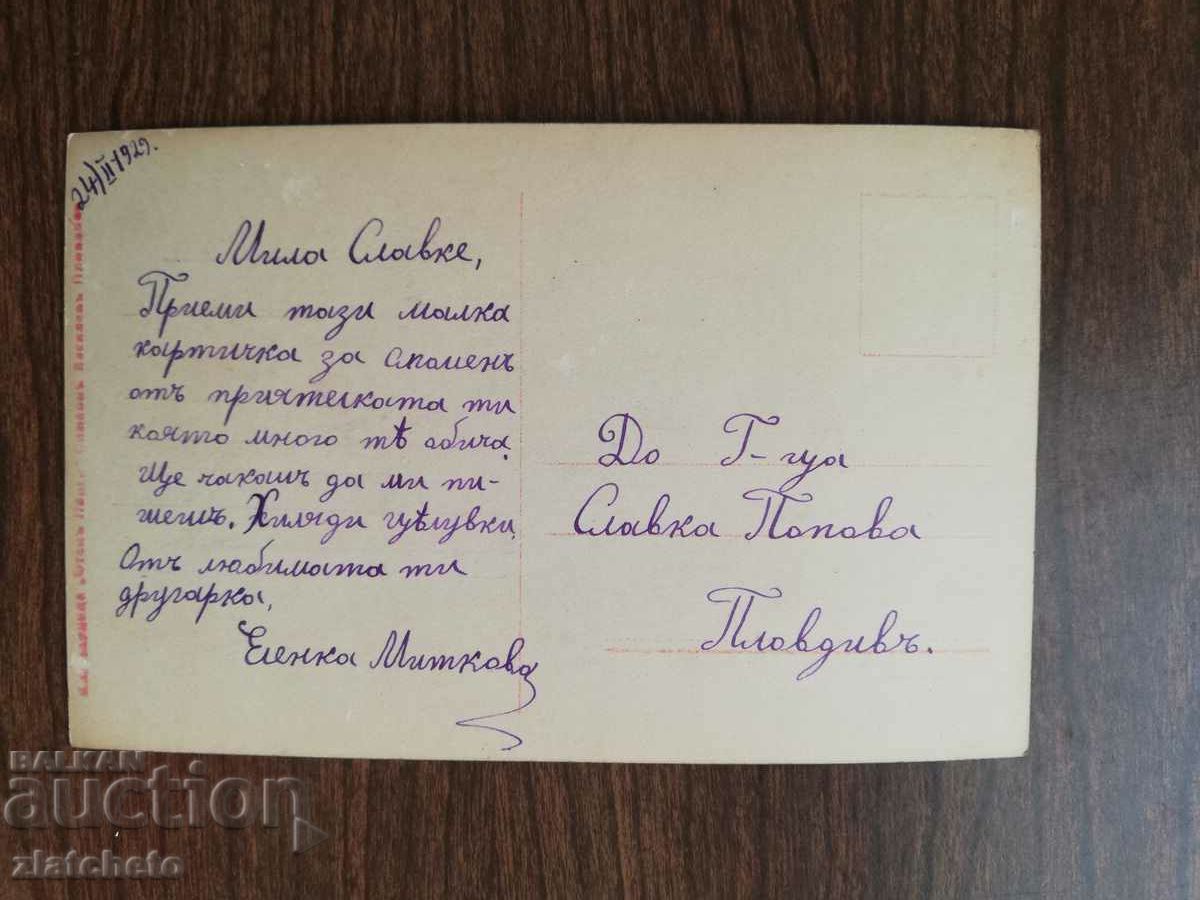 24/II 1929.
Мила Славке,
Приеми тази малка
картичка за споменъ
отъ приятелката ти
която много тѣ обича.
Ще чакашъ да ми пи-
шешъ. Хиляди цѣлувки.
Отъ любимата ти
другарка,
Еленка Миткова
До Г-ца
Славка Попова
Пловдивъ.
BALKAN
auction
zlatcheto